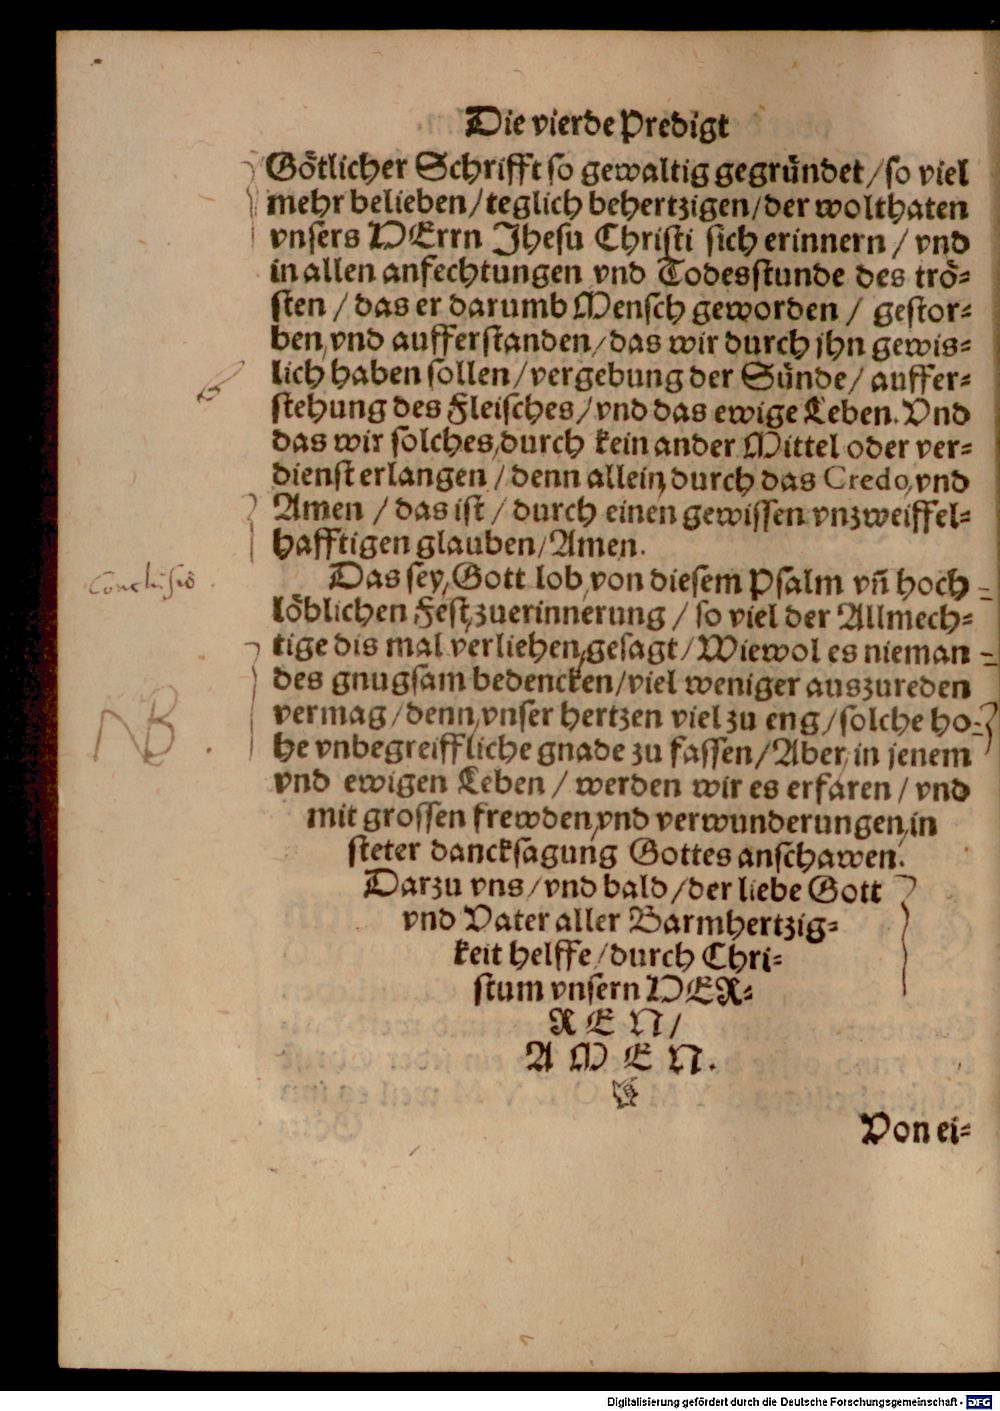 Die vierde Predigt
Götlicher Schrifft so gewaltig gegründet / so viel
mehr belieben / teglich behertzigen / der wolthaten
vnsers HErrn Jhesu Christi sich erinnern / vnd
in allen anfechtungen vnd Todesstunde des trö⸗
sten / das er darumb Mensch geworden / gestor⸗
ben, vnd aufferstanden / das wir durch jhn gewis⸗
lich haben sollen / vergebung der Sünde / auffer⸗
stehung des Fleisches / vnd das ewige Leben. Vnd
das wir solches, durch kein ander Mittel oder ver⸗
dienst erlangen / denn allein, durch das Credo, vnd
Amen / das ist / durch einen gewissen vnzweiffel⸗
hafftigen glauben / Amen.
Conclusio
Das sey, Gott lob, von diesem Psalm vn̄ hoch
löblichen Fest, zuerinnerung / so viel der Allmech⸗
tige dis mal verliehen, gesagt / Wiewol es nieman
des gnugsam bedencken / viel weniger auszureden
NB.
vermag / denn, vnser hertzen viel zu eng / solche ho⸗
he vnbegreiffliche gnade zu fassen / Aber, in jenem
vnd ewigen Leben / werden wir es erfaren / vnd
mit grossen frewden, vnd verwunderungen, in
steter dancksagung Gottes anschawen.
Darzu vns / vnd bald / der liebe Gott
vnd Vater aller Barmhertzig⸗
keit helffe / durch Chri⸗
stum vnsern HER⸗
REN /
AMEN.
Von ei⸗
Digitalisierung gefördert durch die Deutsche Forschungsgemeinschaft - DFG